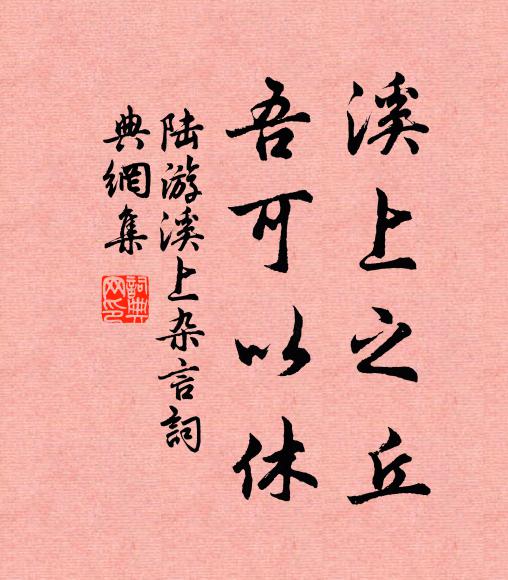 溪上之丘
吾可以休
陆游溪上杂言詞
典網集
詞典网印